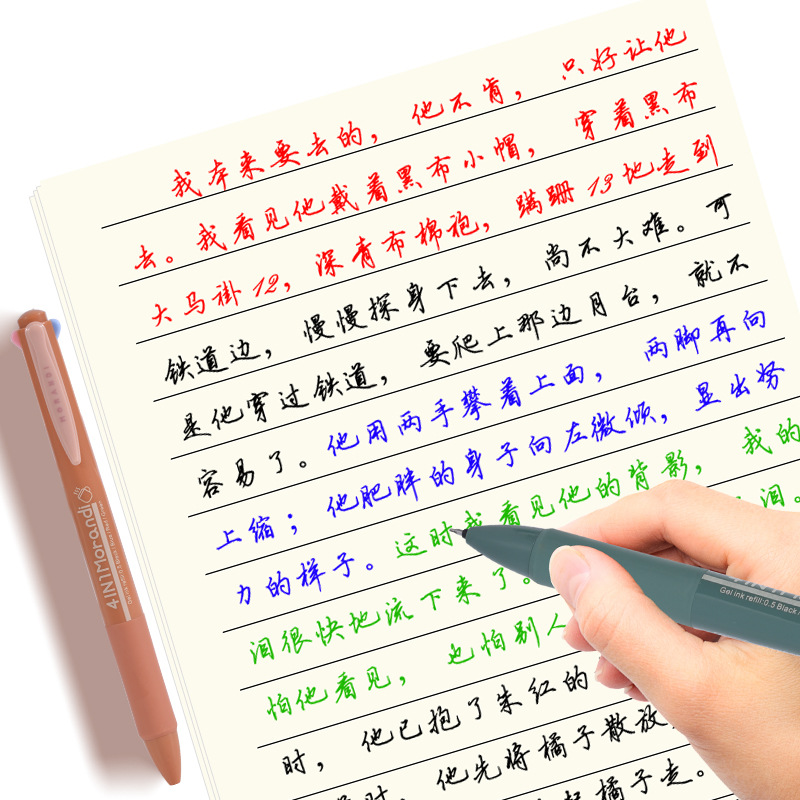 我本来要去的，他不肯，只好让他
去。我看见他戴着黑布小帽，穿着黑布
大马褂12，深青布棉袍，蹒跚13地走到
铁道边，慢慢探身下去，尚不大难。可
是他穿过铁道，要爬上那边月台，就不
容易了。他用两手攀着上面，两脚再向
上缩；他肥胖的身子向左微倾，显出努
力的样子。这时我看见他的背影，我的
泪很快地流下来了。泪。
怕他看见，也怕别人
时，他已抱了朱红的
时，他先将橘子散放
橘子走。
MORANDI
4IN1Morandi
Gel ink refill:0.5 Black